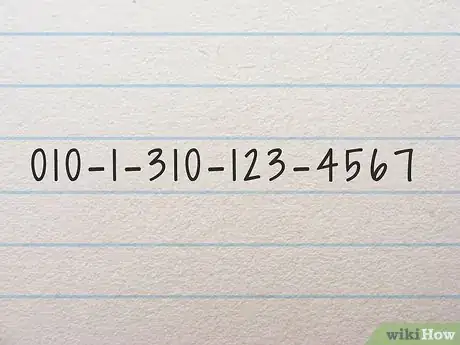 010-1-310-123-4567
wikiHow